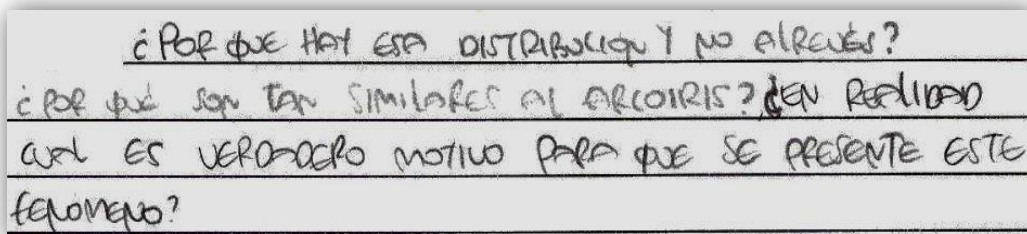 ¿POR QUE HAY ESA DISTRIBUCION Y NO ALREVÉS?
¿POR QUÉ SON TAN SIMILARES AL ARCOIRIS? ¿EN REALIDAD
CUAL ES VERDADERO MOTIVO PARA QUE SE PRESENTE ESTE
FENOMENO?